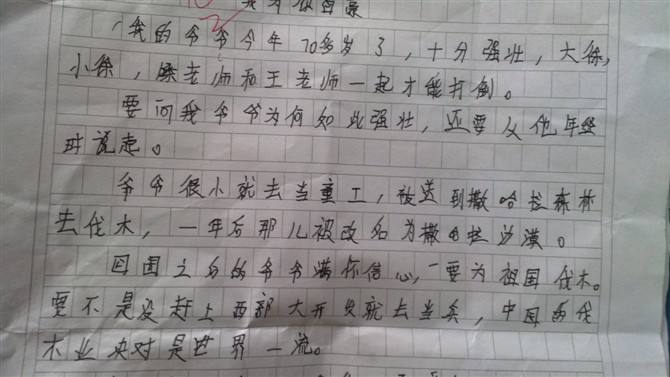 我的爷爷今年70多岁了，十分强壮，大徐，
小徐，陈老师和王老师一起才能打倒。
要问我爷爷为何如此强壮，还要从他年轻
时说起。
爷爷很小就去当童工，被送到撒哈拉森林
去伐木，一年后那儿被改名为撒哈拉沙漠。
回国之后的爷爷满怀信心，一要为祖国伐木。
要不是没赶上西部大开发就去当兵，中国的伐
木业决对是世界一流。